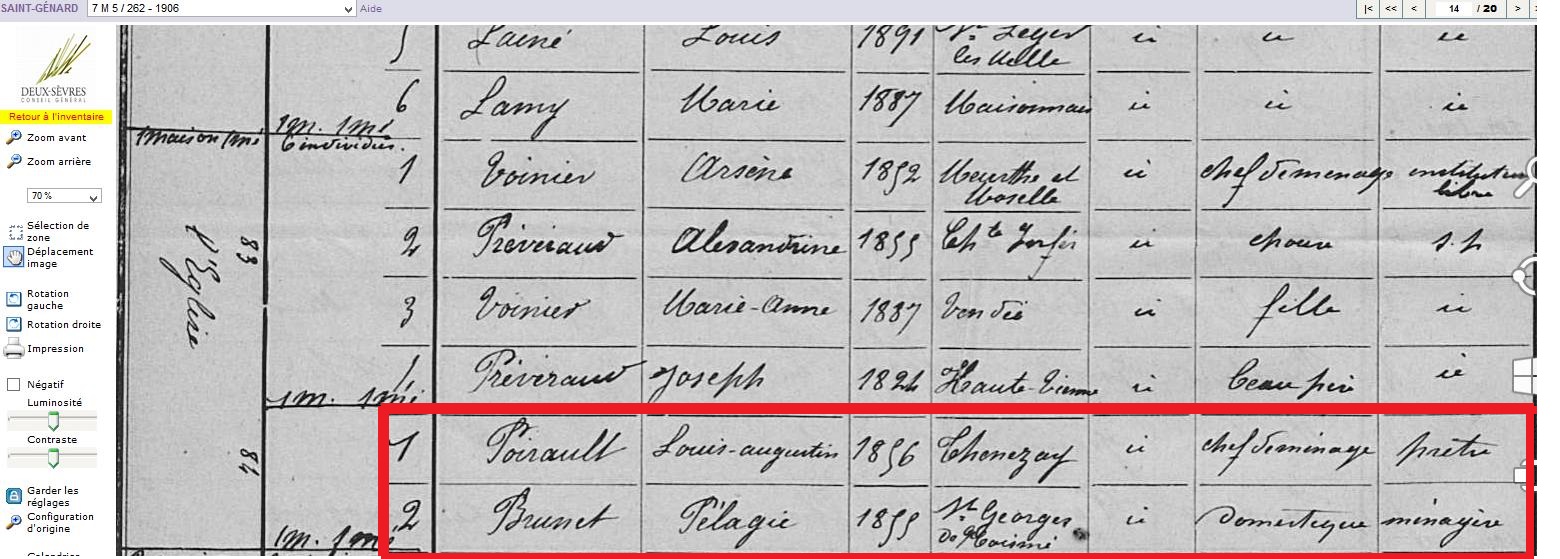 SAINT-GÉNARD 7 M 5 / 262 - 1906 Aide |< << < 14 / 20 >
DEUX-SÈVRES
CONSEIL GÉNÉRAL
Retour à l'inventaire
Zoom avant
Zoom arrière
70 %
Sélection de
zone
Déplacement
image
Rotation
gauche
Rotation droite
Impression
Négatif
Luminosité
Contraste
Garder les
réglages
Configuration
d'origine
Calendrier
5 Lainé Louis 1891 St Leger ii ii ii
les Melle
6 Lamy Marie 1887 Maisonnais ii ii ii
1 maison 1 mé 1 m. 1 mé
6 individus.
1 Voinier Arsène 1852 Meurthe et ii chef de menage instituteur
Moselle libre
2 Préveraud Alexandrine 1855 Chte Infre ii s.p
3 Voinier Marie-Anne 1887 Vendée ii fille ii
Préveraud Joseph 1824 Haute-Vienne ii beau père ii
1 m. 1 mé
l'Eglise
83
84
1 Poirault Louis-augustin 1856 Thenezay ii chef de ménage prêtre
2 Brunet Pélagie 1855 St Georges ii domestique ménagère
de Noisné
1 m. 1 mé